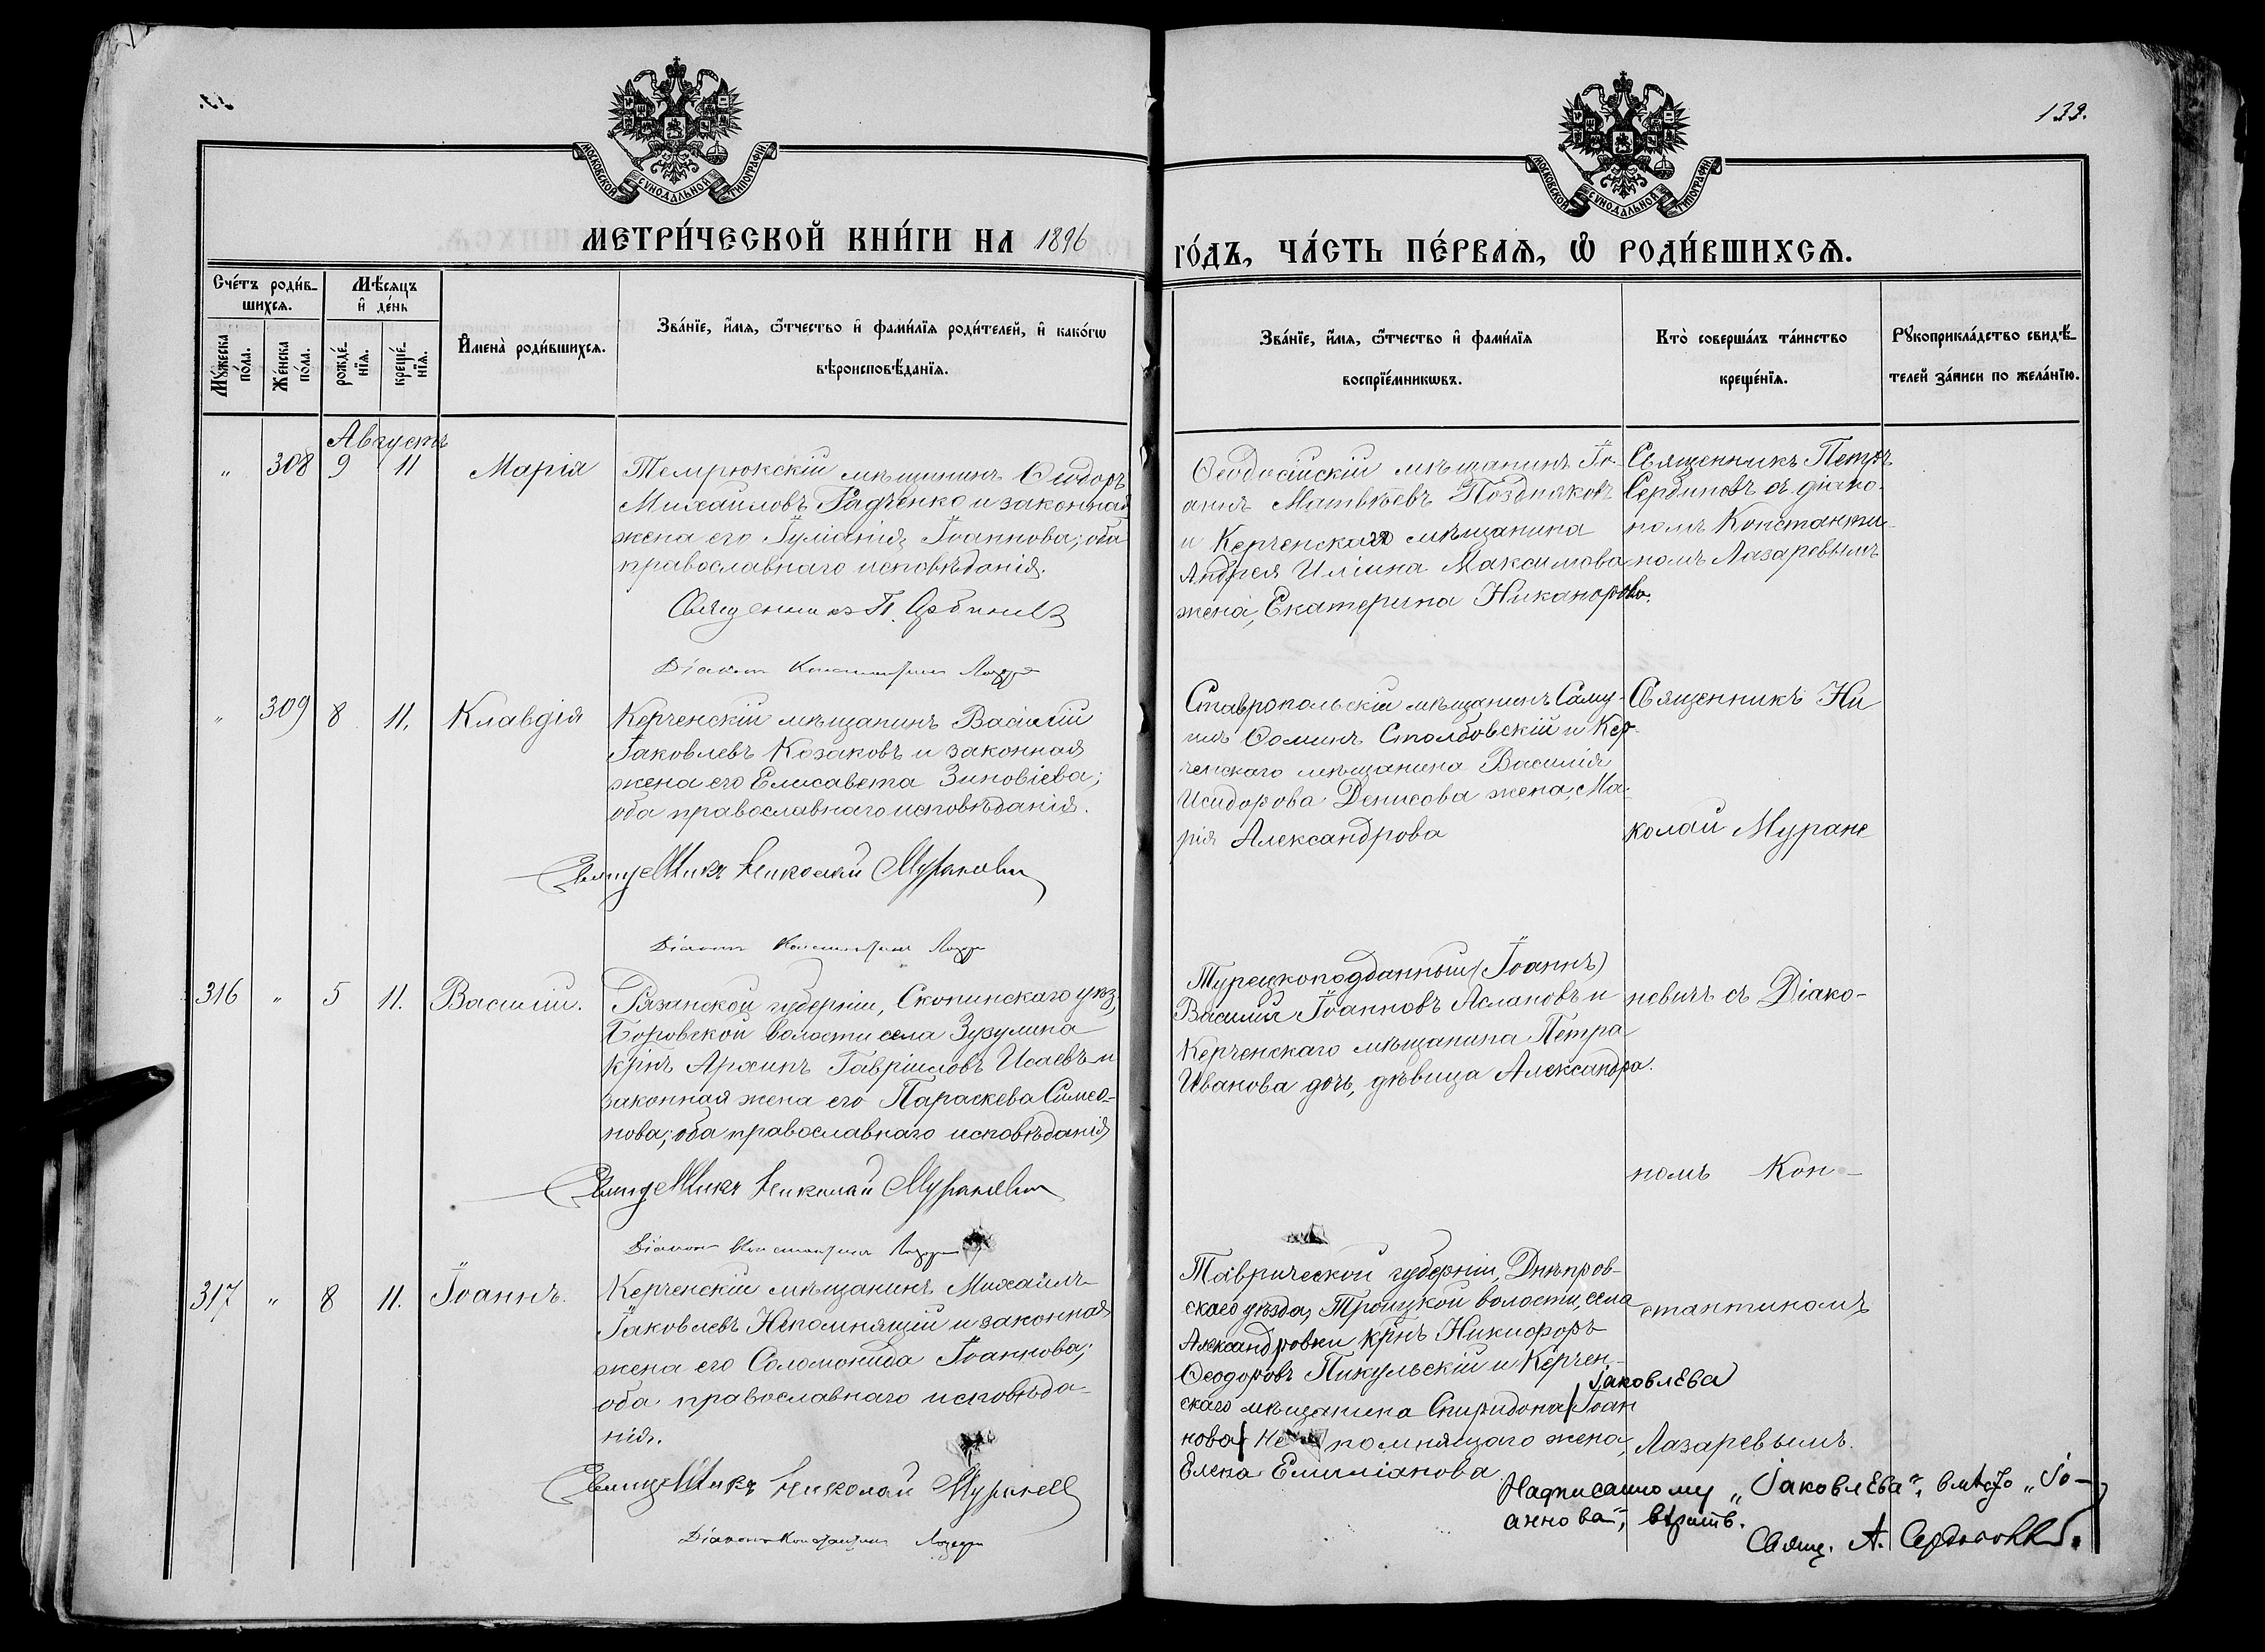 133.
МОСКОВСКОЙ СУНОДАЛЬНОЙ ТИПОГРАФІИ.
МОСКОВСКОЙ СУНОДАЛЬНОЙ ТИПОГРАФІИ.
МЕТРИ́ЧЕСКОЙ КНИ́ГИ НА 1896
ГО́ДЪ, ЧА́СТЬ ПЕ́РВАѦ, Ѡ҆ РОДИ́ВШИХСѦ.
Сче́тъ роди́в-
шихсѧ.
Мѣ́сяцъ
и҆ де́нь
Мꙋ́жеска
по́ла.
Же́нска
по́ла.
рожде́-
нїѧ.
креще́-
нїѧ.
И҆мена̀ роди́вшихсѧ.
Зва́нїе, и҆́мѧ, ѻ҆́тчество и҆ фами́лїѧ роди́телей, и҆ како́гѡ
вѣроисповѣ́данїѧ.
Зва́нїе, и҆́мѧ, ѻ҆́тчество и҆ фами́лїѧ
воспрїе́мникѡвъ.
Кто̀ соверша́лъ та́инство
креще́нїѧ.
Рꙋкоприкла́дство свидѣ́-
телей за́писи по жела́нїю.
Августъ
„ 308 9 11 Марія
Темрюкскій мѣщанинъ Сидоръ
Михайловъ Радченко и законная
жена его Іуліанія Іоаннова; оба
православнаго исповѣданія.
Священникъ П. Сербиновъ
Діаконъ Константинъ Лазаревъ
Ѳеодосійскій мѣщанинъ Іо-
аннъ Матвѣевъ Поздняковъ
и Керченскаго мѣщанина
Андрея Иліина Максимова
жена, Екатерина Никанорова.
Священникъ Петръ
Сербиновъ съ діако-
номъ Константи-
номъ Лазаревымъ
„ 309 8 11. Клавдія
Керченскій мѣщанинъ Василій
Іаковлевъ Козаковъ и законная
жена его Елисавета Зиновіева;
оба православнаго исповѣданія.
Священникъ Николай Мураневичъ
Діаконъ Константинъ Лазаревъ
Ставропольскій мѣщанинъ Саму-
илъ Ѳоминъ Столбовскій и Кер-
ченскаго мѣщанина Василія
Исидорова Денисова жена, Ма-
рія Александрова
Священникъ Ни
колай Муране
316 „ 5 11. Василій.
Рязанской губерніи, Скопинскаго уѣз.,
Боровской волости села Зузулина
кр҃нъ Архипъ Гавріиловъ Исаевъ и
законная жена его Параскева Симео-
нова; оба православнаго исповѣданія
Священникъ Николай Мураневичъ
Діаконъ Константинъ Лазаревъ
Турецкоподданный (Іоаннъ)
Василій Іоанновъ Аслановъ и
Керченскаго мѣщанина Петра
Иванова дочь, дѣвица Александра.
невичъ съ Діако-
номъ Кон-
317 „ 8 11. Іоаннъ.
Керченскій мѣщанинъ Михаилъ
Іаковлевъ Непомнящій и законная
жена его Соломонида Іоаннова;
оба православнаго исповѣда-
нія.
Священникъ Николай Мураневичъ
Діаконъ Константинъ Лазаревъ
Таврической губерніи, Днѣпров-
скаго уѣзда, Троицкой волости, села
Александровки кр҃нъ Никифоръ
Ѳеодоровъ Пикульскій и Керчен-
Іаковлева
скаго мѣщанина Спиридона Іоан
нова Непомнящаго жена,
Елена Емиліанова
стантиномъ
Лазаревымъ.
Надписанному „Іаковлева", вмѣсто „Іо-
аннова", вѣрить.
Свящ. А. Сербиновъ.